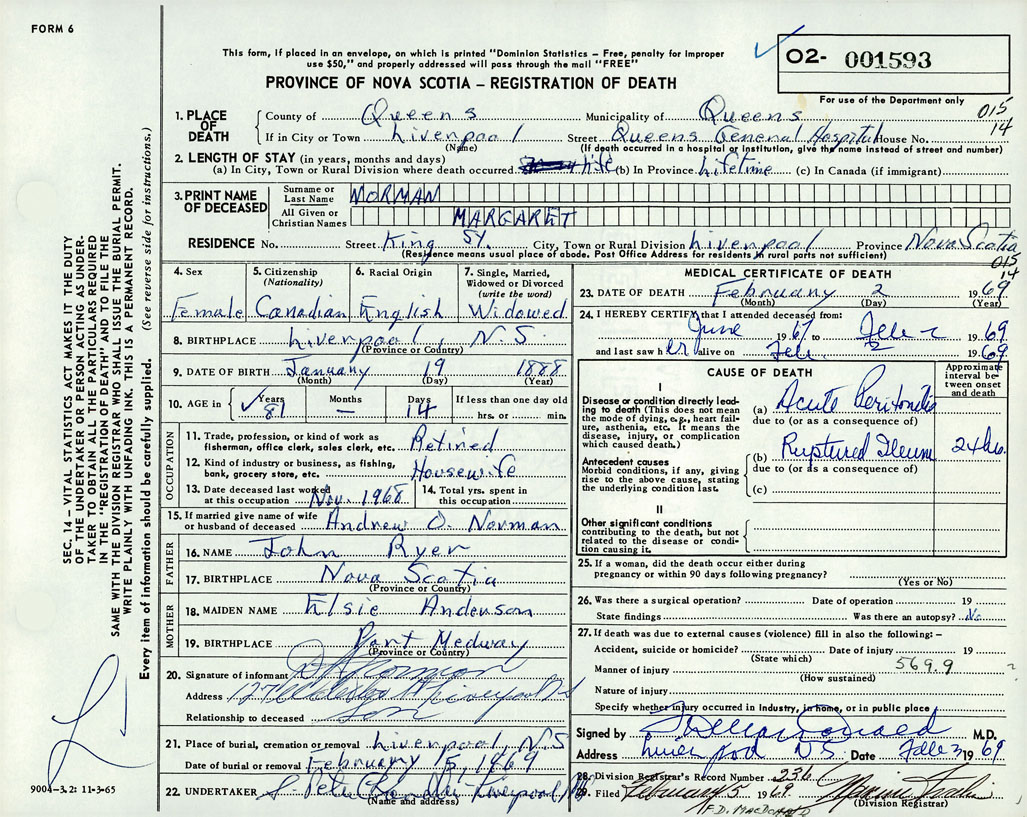 FORM 6
This form, if placed in an envelope, on which is printed "Dominion Statistics – Free, penalty for improper
use $50," and properly addressed will pass through the mail "FREE"
PROVINCE OF NOVA SCOTIA – REGISTRATION OF DEATH
02- 001593
For use of the Department only
015
14
1. PLACE OF DEATH County of Queens Municipality of Queens
If in City or Town Liverpool Street Queens General Hospital House No.
(Name) (If death occurred in a hospital or institution, give the name instead of street and number)
2. LENGTH OF STAY (in years, months and days)
(a) In City, Town or Rural Division where death occurred life (b) In Province Lifetime (c) In Canada (if immigrant)
3. PRINT NAME OF DECEASED Surname or Last Name NORMAN
All Given or Christian Names MARGARET
RESIDENCE No. Street King St. City, Town or Rural Division Liverpool Province Nova Scotia
(Residence means usual place of abode. Post Office Address for residents in rural parts not sufficient)
015
14
4. Sex Female
5. Citizenship (Nationality) Canadian
6. Racial Origin English
7. Single, Married, Widowed or Divorced (write the word) Widowed
8. BIRTHPLACE Liverpool, N.S.
(Province or Country)
9. DATE OF BIRTH January 19 1888
(Month) (Day) (Year)
10. AGE in Years 81 Months – Days 14 If less than one day old
hrs. or min.
OCCUPATION
11. Trade, profession, or kind of work as fisherman, office clerk, sales clerk, etc. Retired
12. Kind of industry or business, as fishing, bank, grocery store, etc. Housewife
13. Date deceased last worked at this occupation Nov. 1968 14. Total yrs. spent in this occupation
15. If married give name of wife or husband of deceased Andrew O. Norman
FATHER
16. NAME John Ryer
17. BIRTHPLACE Nova Scotia
(Province or Country)
MOTHER
18. MAIDEN NAME Elsie Anderson
19. BIRTHPLACE Port Medway
(Province or Country)
20. Signature of informant
Address Liverpool NS
Relationship to deceased Son
21. Place of burial, cremation or removal Liverpool, N.S
Date of burial or removal February 5, 1969
22. UNDERTAKER Liverpool
(Name and address)
MEDICAL CERTIFICATE OF DEATH
23. DATE OF DEATH February 2 1969
(Month) (Day) (Year)
24. I HEREBY CERTIFY that I attended deceased from:
June 1967 to Feb 2 1969
and last saw her alive on Feb 2 1969
CAUSE OF DEATH
Approximate interval between onset and death
I
Disease or condition directly leading to death (This does not mean the mode of dying, e.g., heart failure, asthenia, etc. It means the disease, injury, or complication which caused death.)
(a) Acute Peritonitis
due to (or as a consequence of)
Antecedent causes
Morbid conditions, if any, giving rise to the above cause, stating the underlying condition last.
(b) Ruptured Ileum 24 hrs.
due to (or as a consequence of)
(c)
II
Other significant conditions
contributing to the death, but not related to the disease or condition causing it.
25. If a woman, did the death occur either during pregnancy or within 90 days following pregnancy?
(Yes or No)
26. Was there a surgical operation? Date of operation 19
State findings Was there an autopsy? No
27. If death was due to external causes (violence) fill in also the following: –
Accident, suicide or homicide? Date of injury 19
(State which)
Manner of injury 569.9
(How sustained)
Nature of injury
Specify whether injury occurred in Industry, in home, or in public place
Signed by M.D.
Address Liverpool N.S. Date Feb 3 1969
28. Division Registrar's Record Number 236
29. Filed February 5 1969
(Division Registrar)
F.D. MacDonald
SEC. 14 – VITAL STATISTICS ACT MAKES IT THE DUTY
OF THE UNDERTAKER OR PERSON ACTING AS UNDER-
TAKER TO OBTAIN ALL THE PARTICULARS REQUIRED
IN THE "REGISTRATION OF DEATH" AND TO FILE THE
SAME WITH THE DIVISION REGISTRAR WHO SHALL ISSUE THE BURIAL PERMIT.
WRITE PLAINLY WITH UNFADING INK. THIS IS A PERMANENT RECORD.
Every item of information should be carefully supplied. (See reverse side for instructions.)
9004-3.2: 11-3-65